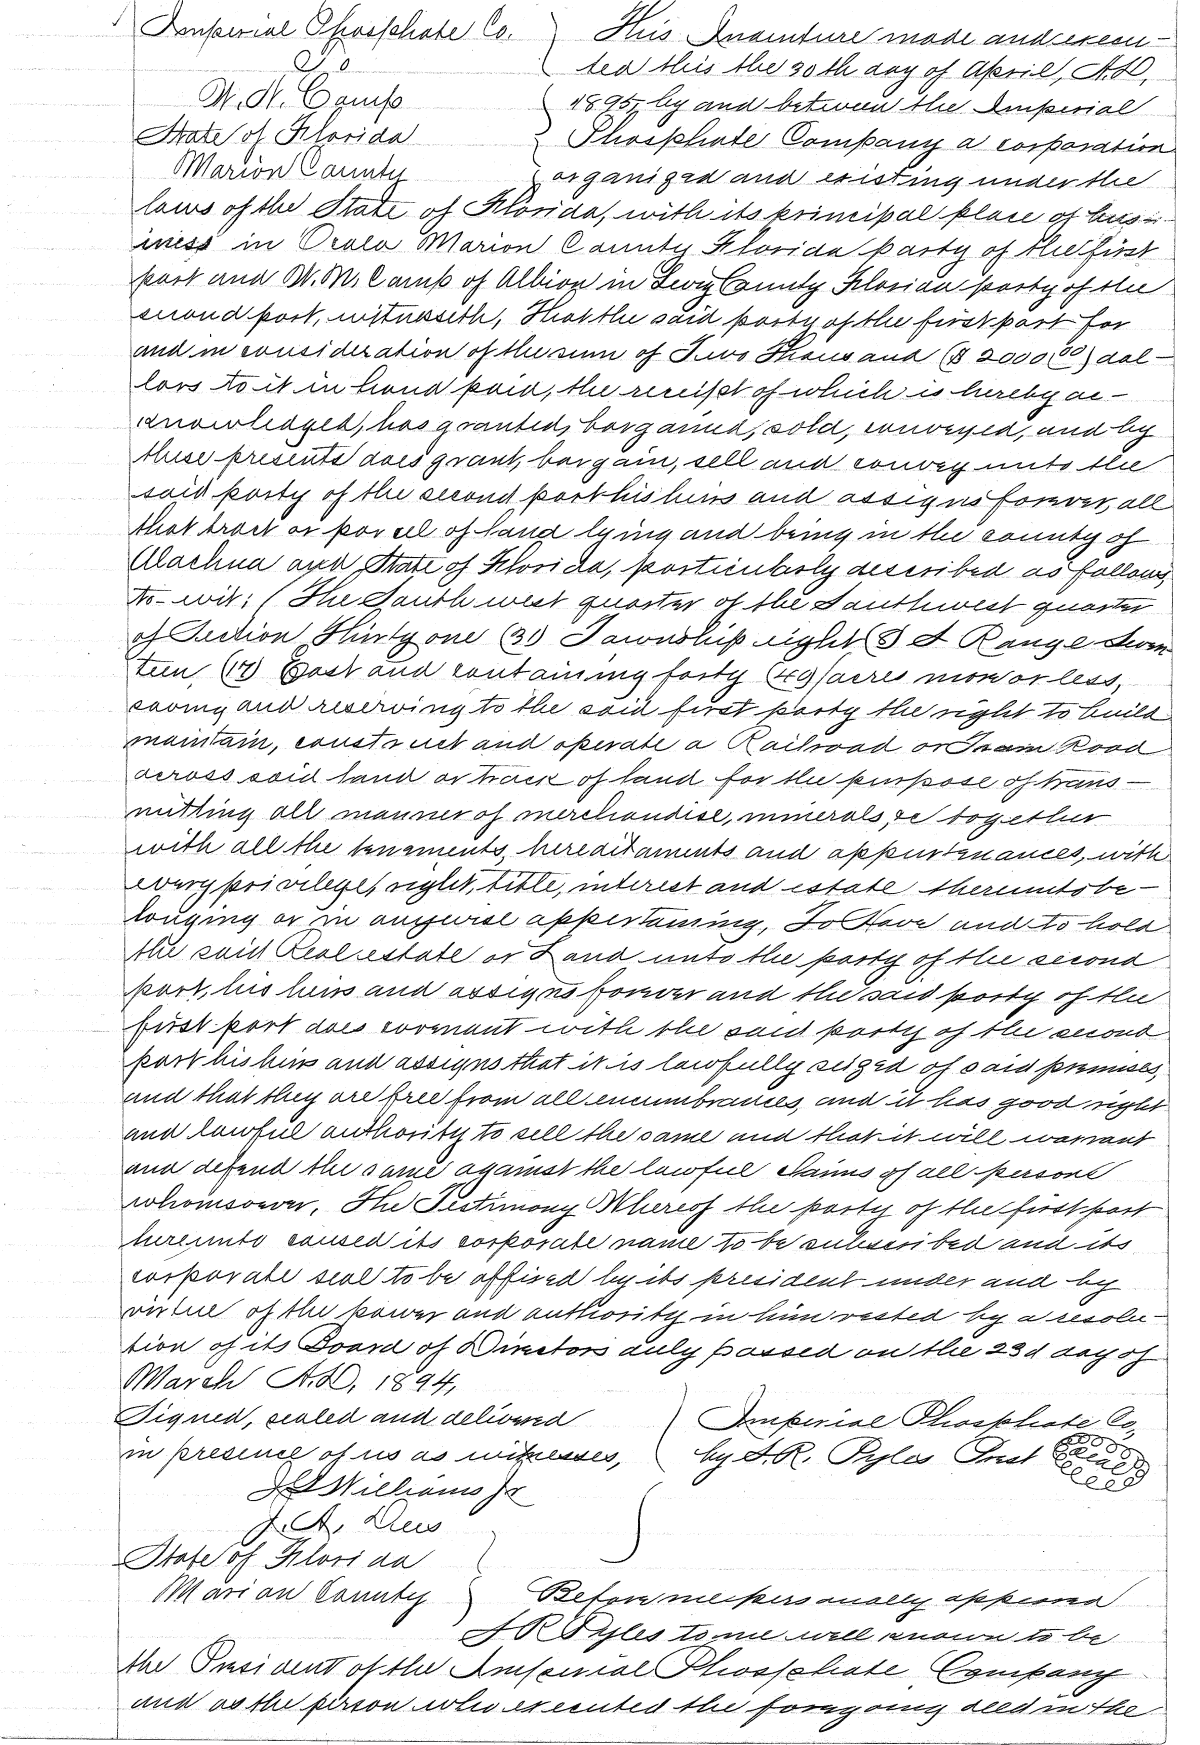 Imperial Phosphate Co.
To
W. N. Camp
State of Florida
Marion County
This Indenture made and execu-
ted this the 30th day of April, A.D,
1895, by and between the Imperial
Phosphate Company a corporation
organized and existing under the
laws of the State of Florida, with its principal place of bus-
iness in Ocala Marion County Florida party of the first
part and W. N. Camp of Albion in Levy County Florida party of the
second part, witnesseth, That the said party of the first part for
and in consideration of the sum of Two Thousand ($2000.00) dol-
lars to it in hand paid, the receipt of which is hereby ac-
knowledged, has granted, bargained, sold, conveyed, and by
these presents does grant, bargain, sell and convey unto the
said party of the second part his heirs and assigns forever, all
that tract or parcel of land lying and being in the county of
Alachua and State of Florida, particularly described as follows,
to-wit; (The South west quarter of the Southwest quarter
of Section Thirty one (31) Township eight (8) S Range Seven-
teen, (17) East and containing forty (40) acres more or less,
saving and reserving to the said first party the right to build
maintain, construct and operate a Railroad or Tram Road
across said land or track of land for the purpose of trans-
mitting all manner of merchandise, minerals, &c together
with all the tenements, hereditaments and appurtenances, with
every privilege, right, title, interest and estate thereunto be-
longing or in anywise appertaining, To Have and to hold
the said Real estate or Land unto the party of the second
part, his heirs and assigns forever and the said party of the
first part does covenant with the said party of the second
part his heirs and assigns that it is lawfully seized of said premises,
and that they are free from all encumbrances, and it has good right
and lawful authority to sell the same and that it will warrant
and defend the same against the lawful claims of all persons
whomsoever, The Testimony Whereof the party of the first part
hereunto caused its corporate name to be subscribed and its
corporate seal to be affixed by its president under and by
virtue of the power and authority in him vested by a resolu-
tion of its Board of Directors duly passed on the 23d day of
March A.D, 1894,
Signed, sealed and delivered
in presence of us as witnesses,
Imperial Phosphate Co,
by S. R. Pyles Prest Seal
Williams Jr
J. A.
State of Florida
Marion County
Before me personally appeared
S R Pyles to me well known to be
the President of the Imperial Phosphate Company
and as the person who executed the foregoing deed in the